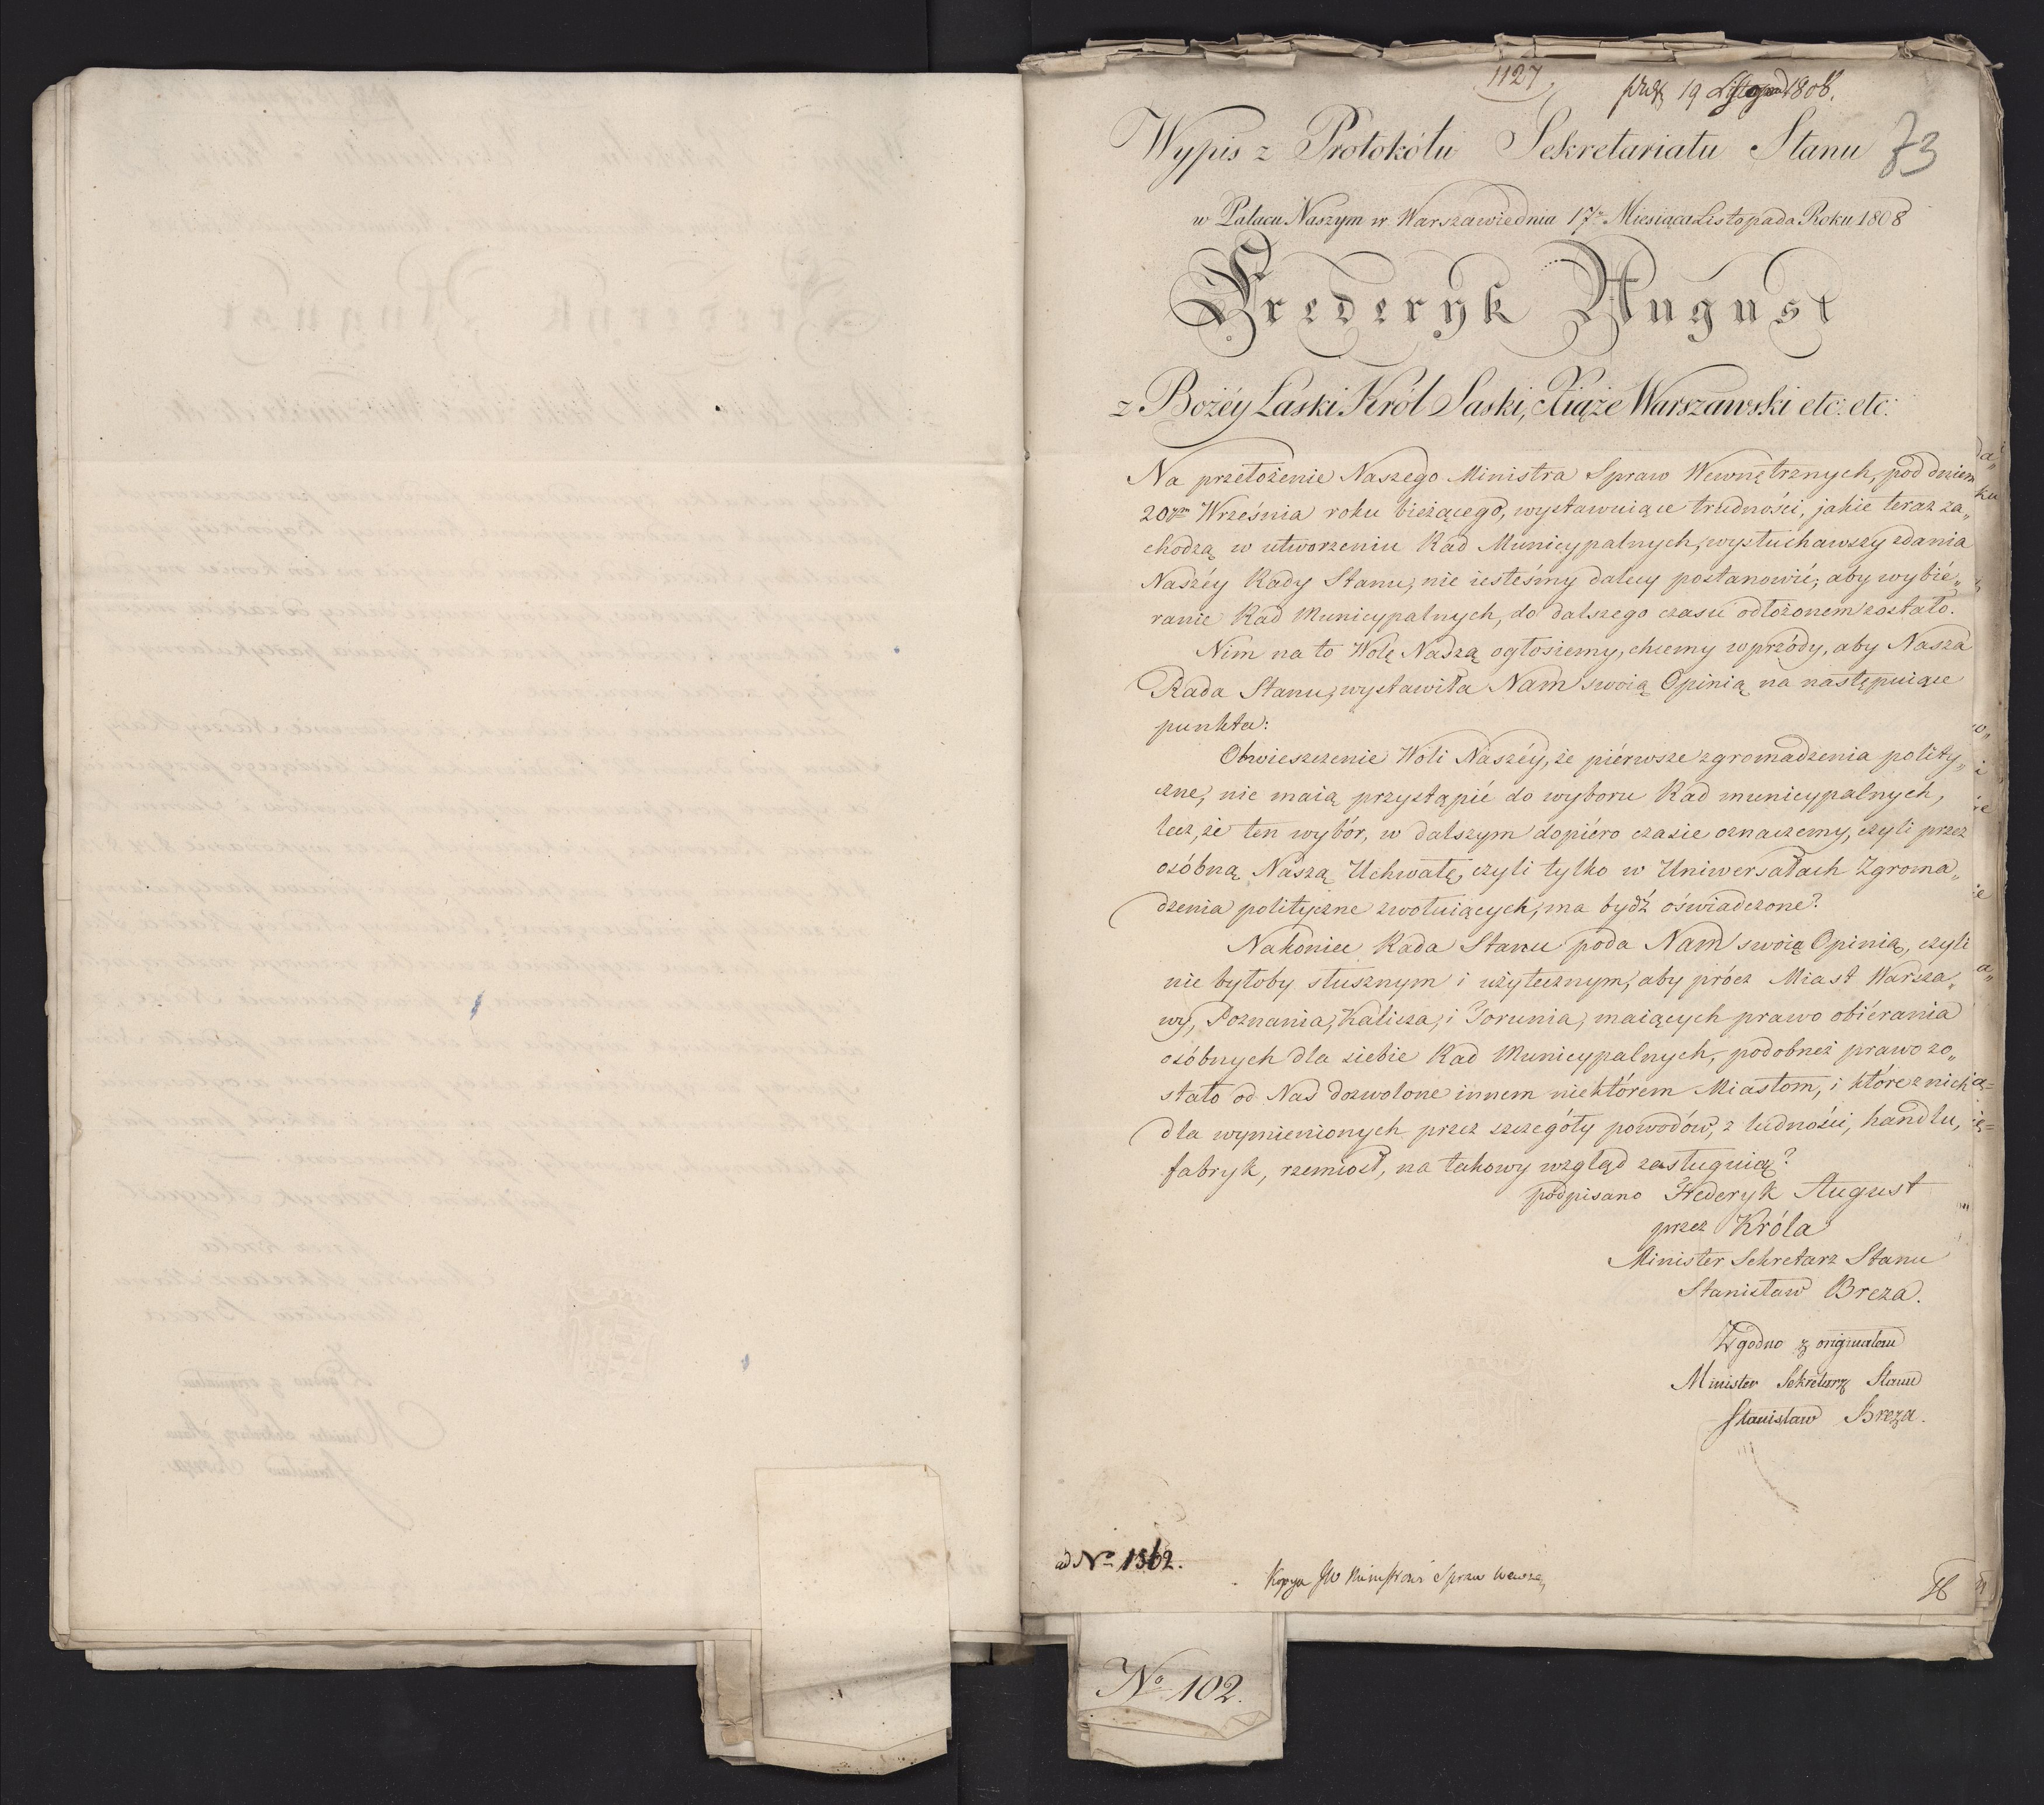 1127.
19 Listopad 1808.
Wypis z Protokółu Sekretariatu Stanu
73
w Pałacu Naszym w Warszawie dnia 17. Miesiąca Listopada Roku 1808
Frederyk August
z Bożéy Łaski Król Saski, Xiąże Warszawski etc: etc:
Na przełożenie Naszego Ministra Spraw Wewnętrznych, pod dniem
20ym Września roku bieżącego, wystawuiące trudności, jakie teraz za„
chodzą w utworzeniu Rad Municypalnych, wysłuchawszy zdania
Naszéy Rady Stanu, nie iesteśmy dalecy postanowić, aby wybié„
ranie Rad Municypalnych, do dalszego czasu odłożonem zostało.
Nim na to Wolę Naszą ogłosiemy, chcemy wprzódy, aby Nasza
Rada Stanu, wystawiła Nam swoią Opinią na następuiące
punkta:
Obwieszczenie Woli Naszéy, że piérwsze zgromadzenia polity„
czne, nie maią przystąpić do wyboru Rad municypalnych,
lecz, że ten wybór, w dalszym dopiéro czasie oznaczemy, czyli przez
osóbną Naszą Uchwałę, czyli tylko w Uniwersałach Zgroma„
dzenia polityczne zwołuiących, ma bydź oświadczone?
Nakoniec Rada Stanu poda Nam swoią Opinią, czyli
nie byłoby słusznym i użytecznym, aby prócz Miast Warsza„
wy, Poznania, Kalisza, i Torunia, maiących prawo obiérania
osóbnych dla siebie Rad Municypalnych, podobneż prawo zo„
stało od Nas dozwolone innem niektórem Miastom, i które z nich
dla wymienionych przez szczegóły powodów, z ludności, handlu,
fabryk, rzemiosł, na takowy wzgląd zasługuią?
podpisano Frederyk August
przez Króla
Minister Sekretarz Stanu
Stanisław Breza.
Zgodno z originałem
Minister Sekretarz Stanu
Stanisław Breza.
ad No 1362.
Kopya JW Ministrowi Spraw Wewnę„
No 102.